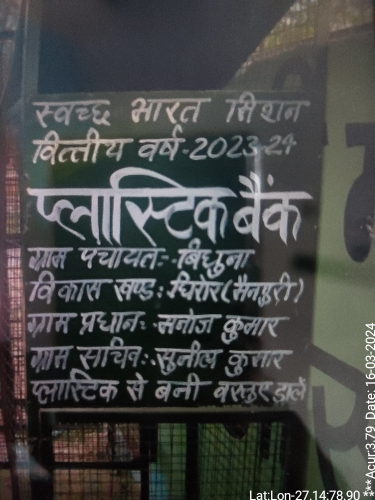 स्वच्छ भारत मिशन
वित्तीय वर्ष-2023-24
प्लास्टिक बैंक
ग्राम पंचायत:-बिधुना
विकास खण्ड: घिरोर (मैनपुरी)
ग्राम प्रधान: मनोज कुमार
ग्राम सचिव:-सुनील कुमार
प्लास्टिक से बनी वस्तुए डालें
Lat:Lon-27.14:78.90 ***Acur:3.79 Date: 16-03-2024